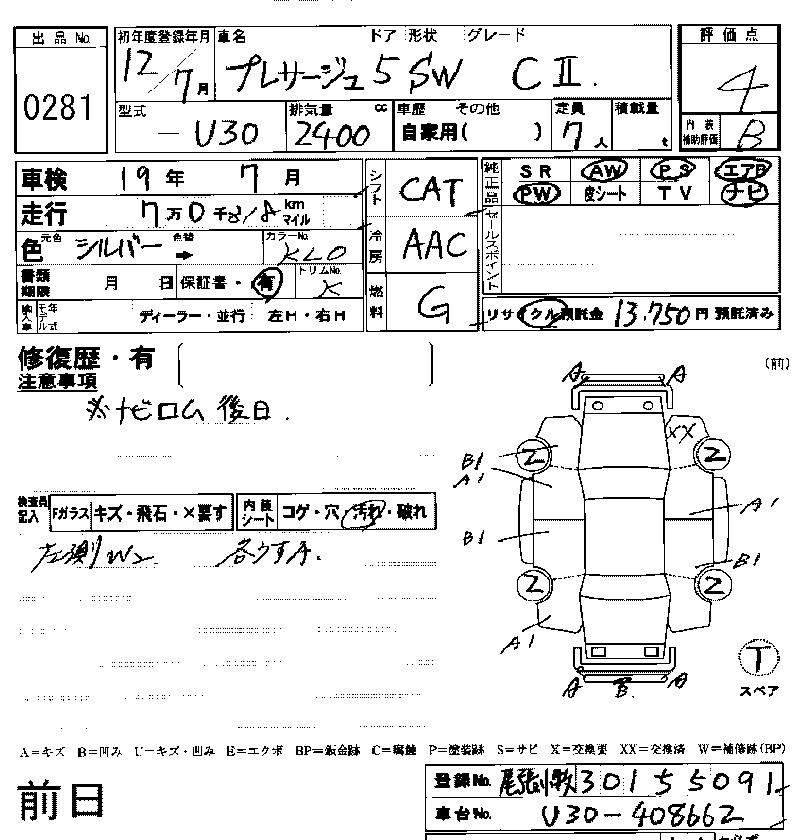 出品No. 初年度登録年月 車名 ドア 形状 グレード 評価点
0281 12/7月 プレサージュ 5 SW CⅡ. 4
型式 排気量 cc 車歴 その他 定員 積載量 内装補助評価
-U30 2400 自家用( ) 7人 t B
車検 19年 7月 シフト CAT 純正品 SR AW PS エアB
走行 7万0千 km マイル PW 皮シート TV ナビ
色 元色 シルバー 色替 → カラーNo. KL0 冷房 AAC セールスポイント
書類期限 月 日 保証書・有 トリムNo. K
輸入車 年モデル式 ディーラー・並行 左H・右H 燃料 G リサイクル預託金 13,750円 預託済み
修復歴・有
注意事項
※ナビロム後日.
(前)
A A
XX
2 2
B1
A1
A1
B1
B1
2 2
A1
A B A
T
スペア
検査員記入 Fガラス キズ・飛石・×要す 内装シート コゲ・穴・汚れ・破れ
左側W2 各うすA.
A=キズ B=凹み U=キズ・凹み E=エクボ BP=鈑金跡 C=腐蝕 P=塗装跡 S=サビ X=交換要 XX=交換済 W=補修跡(BP)
前日
登録No. 尾張小牧 301 55091
車台No. U30-408662